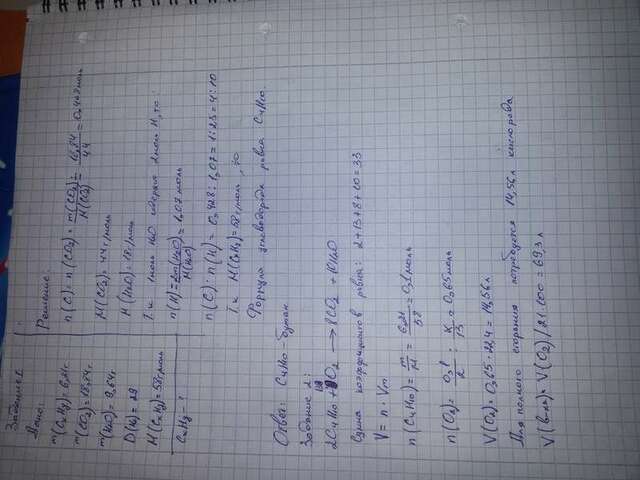 Задание 1.
Дано:
m(CxHy) = 6,21г
m(CO2) = 18,84г
m(H2O) = 9,64г
D(H2) = 29
M(CxHy) = 58г/моль
CxHy - ?
Решение:
n(C) = n(CO2) = m(CO2)/M(CO2) = 18,84/44 = 0,428 моль
M(CO2) = 44 г/моль
M(H2O) = 18 г/моль
Т.к. 1моль H2O содержит 2моль H, то:
n(H) = 2m(H2O)/M(H2O) = 1,07 моль
n(C) : n(H) = 0,428 : 1,07 = 1 : 2,5 = 4 : 10
Т.к. M(CxHy) = 58 г/моль, то
Формула углеводорода равна C4H10
Ответ: C4H10 - бутан
Задание 2:
2C4H10 + 13O2 → 8CO2 + 10H2O
Сумма коэффициентов равна: 2+13+8+10=33
V = n · Vm
n(C4H10) = m/M = 6,21/58 = 0,1 моль
n(O2) = 0,1/2 = x/13 = 0,65 моль
V(O2) = 0,65 · 22,4 = 14,56 л
Для полного сгорания потребуется 14,56 л кислорода
V(возд) = V(O2)/21 · 100 = 69,3 л